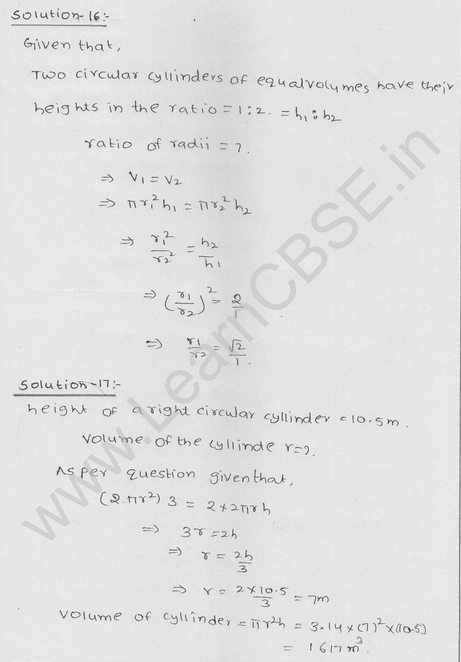 Solution-16:-
Given that,
Two circular cyllinders of equal volumes have their
heights in the ratio = 1:2. = h₁:h₂
ratio of radii = ?
⇒ V₁ = V₂
⇒ πr₁²h₁ = πr₂²h₂
⇒ r₁²/r₂² = h₂/h₁
⇒ (r₁/r₂)² = 2/1
⇒ r₁/r₂ = √2/1.
Solution-17:-
height of a right circular cyllinder = 10.5m.
Volume of the cyllinder = ?.
As per question given that,
(2πr²)3 = 2×2πrh
⇒ 3r = 2h
⇒ r = 2h/3
⇒ r = 2×10.5/3 = 7m
Volume of cyllinder = πr²h = 3.14×(7)²×(10.5)
= 1617m³.
www.LearnCBSE.in